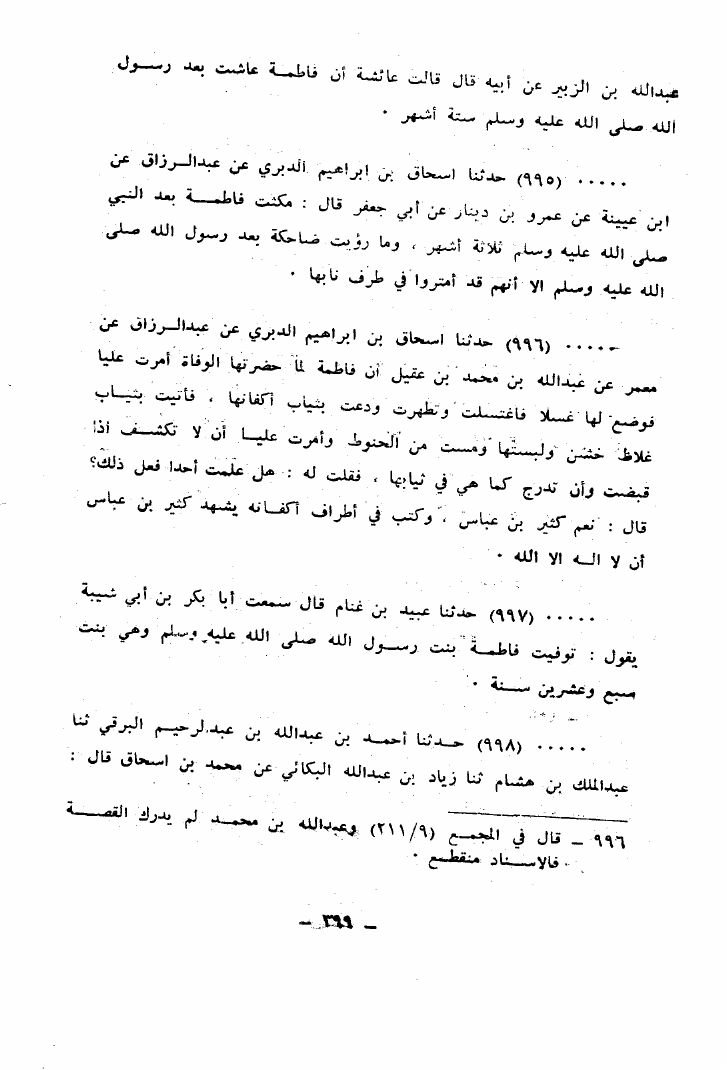 عبدالله بن الزبير عن أبيه قال قالت عائشة أن فاطمة عاشت بعد رسول
الله صلى الله عليه وسلم ستة أشهر ٠
٠٠٠٠٠ (٩٩٥) حدثنا اسحاق بن ابراهيم الدبري عن عبدالرزاق عن
ابن عيينة عن عمرو بن دينار عن أبي جعفر قال : مكثت فاطمة بعد النبي
صلى الله عليه وسلم ثلاثة أشهر ، وما رؤيت ضاحكة بعد رسول الله صلى
الله عليه وسلم الا أنهم قد أمتروا في طرف نابها ٠
٠٠٠٠٠ (٩٩٦) حدثنا اسحاق بن ابراهيم الدبري عن عبدالرزاق عن
معمر عن عبدالله بن محمد بن عقيل أن فاطمة لما حضرتها الوفاة أمرت عليا
فوضع لها غسلا فاغتسلت وتطهرت ودعت بثياب أكفانها ، فأتيت بثياب
غلاظ خشن ولبستها ومست من الحنوط وأمرت عليا أن لا تكشف اذا
قبضت وأن تدرج كما هي في ثيابها ، فقلت له : هل علمت أحدا فعل ذلك؟
قال : نعم كثير بن عباس ، وكتب في أطراف أكفانه يشهد كثير بن عباس
أن لا اله الا الله ٠
٠٠٠٠٠ (٩٩٧) حدثنا عبيد بن غنام قال سمعت أبا بكر بن أبي شيبة
يقول : توفيت فاطمة بنت رسول الله صلى الله عليه وسلم وهي بنت
سبع وعشرين سنة ٠
٠٠٠٠٠ (٩٩٨) حدثنا أحمد بن عبدالله بن عبدالرحيم البرقي ثنا
عبدالملك بن هشام ثنا زياد بن عبدالله البكائي عن محمد بن اسحاق قال :
٩٩٦ – قال في المجمع (٢١١/٩) وعبدالله بن محمد لم يدرك القصة
فالاسناد منقطع ٠
– ٣٩٩ –